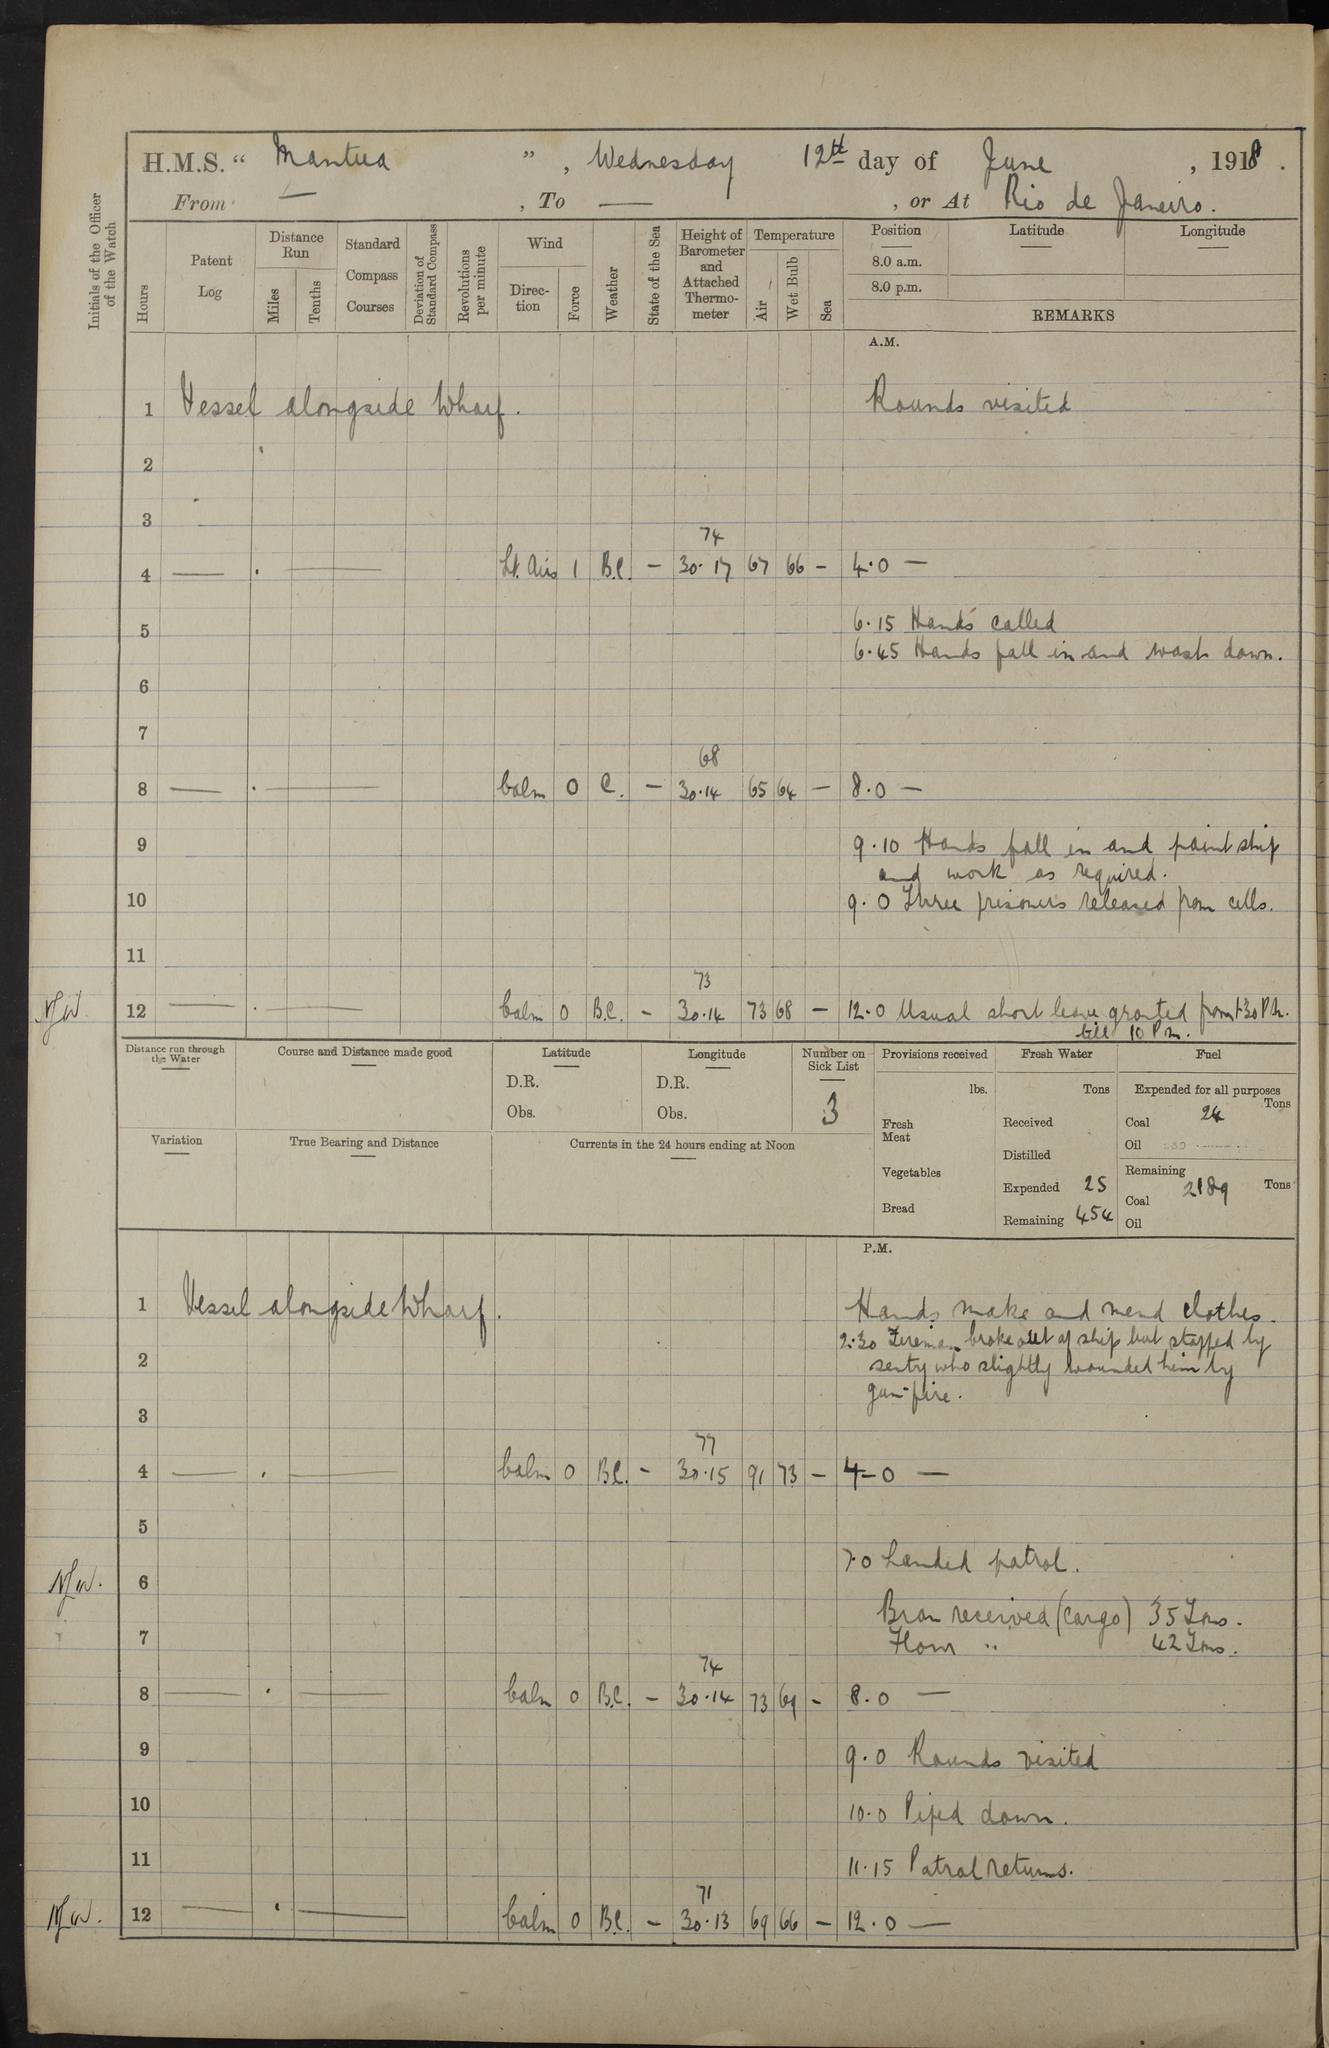 H.M.S. " Mantua ", Wednesday 12th day of June, 1918.
From — , To — , or At Rio de Janeiro.
Initials of the Officer of the Watch
Hours
Patent Log
Distance Run
Miles
Tenths
Standard Compass Courses
Deviation of Standard Compass
Revolutions per minute
Wind
Direction
Force
Weather
State of the Sea
Height of Barometer and Attached Thermometer
Temperature
Air
Wet Bulb
Sea
Position
8.0 a.m.
8.0 p.m.
Latitude
Longitude
REMARKS
A.M.
1 Vessel alongside Wharf. Rounds visited
2
3
74
4 — . — Lt. Airs 1 B.C. — 30.17 67 66 — 4.0 —
6.15 Hands called
5
6.45 Hands fall in and wash down.
6
7
68
8 — . — Calm 0 C. — 30.14 65 64 — 8.0 —
9 9.10 Hands fall in and paint ship
and work as required.
10 9.0 Three prisoners released from cells.
11
73
12 — . — Calm 0 B.C. — 30.14 73 68 — 12.0 Usual short leave granted from 1.30 P.M.
till 10 P.m.
Distance run through the Water
Course and Distance made good
Latitude
D.R.
Obs.
Longitude
D.R.
Obs.
Number on Sick List
3
Provisions received
lbs.
Fresh Meat
Vegetables
Bread
Fresh Water
Tons
Received
Distilled
Expended 25
Remaining 454
Fuel
Expended for all purposes
Tons
Coal 24
Oil
Remaining
Tons
Coal 2189
Oil
Variation
True Bearing and Distance
Currents in the 24 hours ending at Noon
P.M.
1 Vessel alongside Wharf. Hands make and mend clothes.
2.30 Fireman broke out of ship but stopped by
2 sentry who slightly wounded him by
gun-fire.
3
77
4 — . — Calm 0 B.C. — 30.15 91 73 — 4-0 —
5
7.0 Landed patrol.
6
Bran received (cargo) 35 Tons.
7 Flour " 42 Tons.
74
8 — . — Calm 0 B.C. — 30.14 73 69 — 8.0 —
9 9.0 Rounds visited
10 10.0 Piped down.
11 11.15 Patrol returns.
71
12 — . — Calm 0 B.C. — 30.13 69 66 — 12.0 —